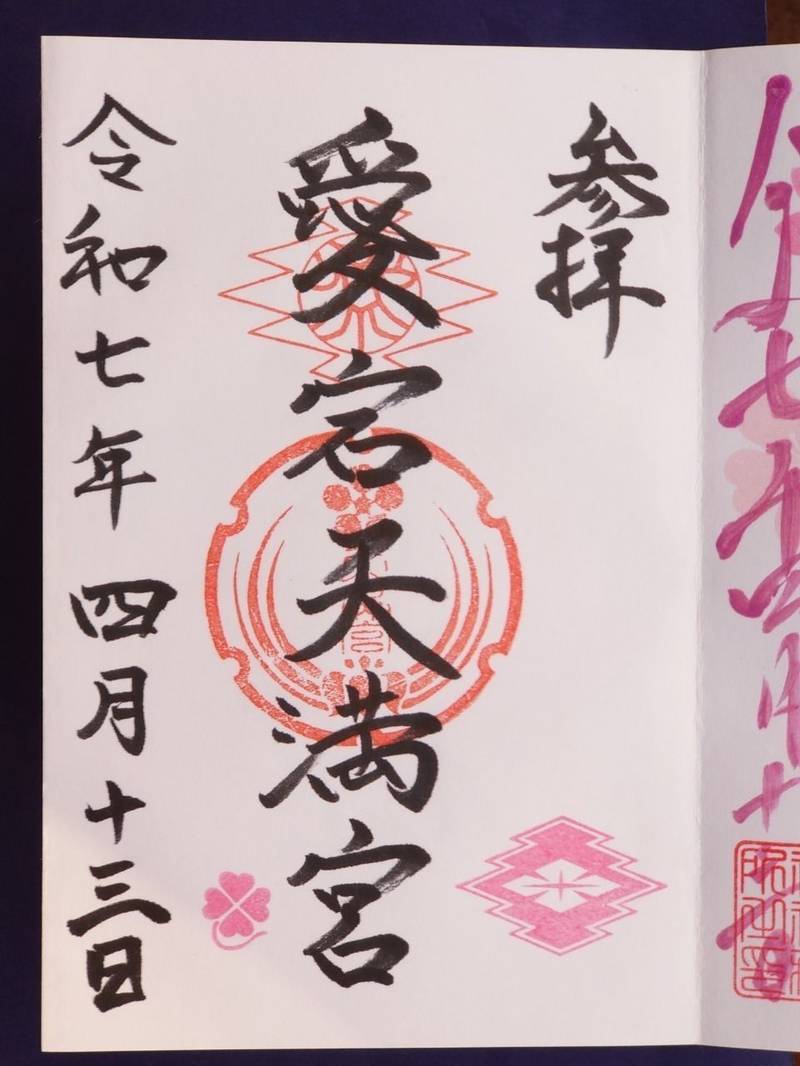 参拝
愛宕天満宮
令和七年四月十三日